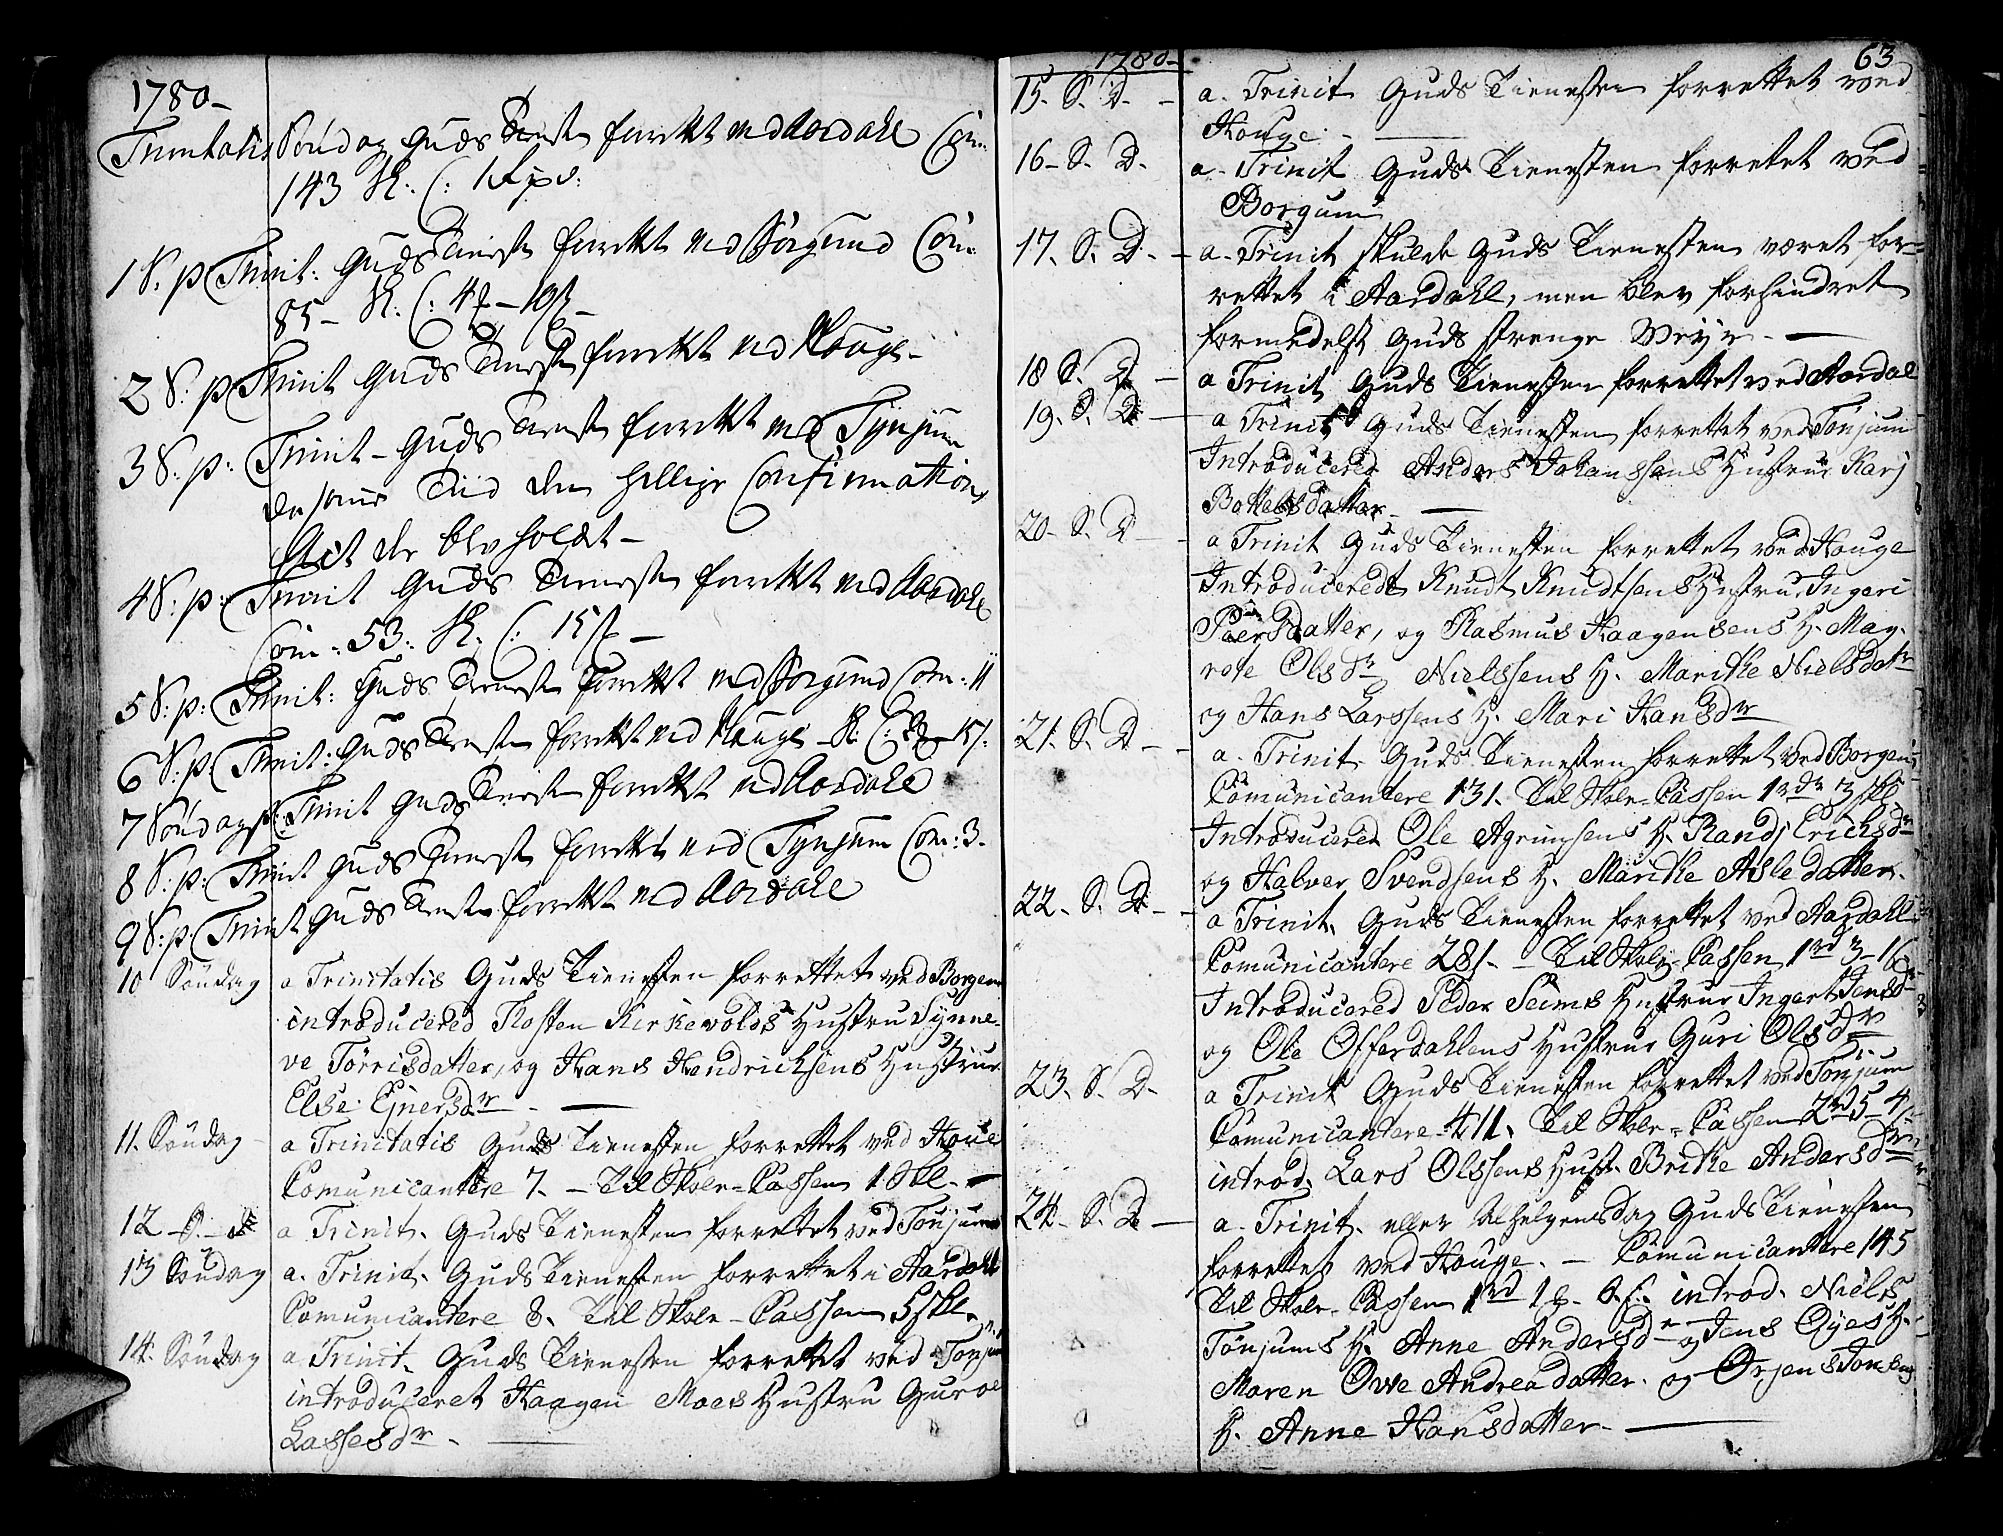 1780-
Trinitatis Søndag Guds Tienest forrettet ved Aardahl Com:
143 Sk: C:
1 S. p Trinit: Guds Tienest forrettet ved Borgund Com:
85- Sk: C:
2 S: p Trinit Guds Tienest forrettet ved Houge-
3 S: p: Trinit- Guds Tienest forrettet ved Tynjum
da samme Tiid den hellige Confirmations
Act der blev holdt-
4 S: p: Trinit Guds Tieneste forrettet ved Aardahl
Com: 53: Sk: C: 15 f-
5 S: p: Trinit: Guds Tieneste forrettet ved Borgund Com: 11
6 S: p. Trinit: Guds Tieneste forrettet ved Houge Sk: C:
7 Søndag p: Trinit Guds Tieneste forrettet ved Aardahl
8 S: p: Trinit Guds Tieneste forrettet ved Tynjum Com: 3.
9 S: p. Trinit Guds Tieneste forrettet ved Aardahl
10 Søndag a Trinitatis Guds Tienesten forrettet ved Borgen
introducered Tosten Kirkevolds Hustru Synne-
ve Torrisdatter, og Hans Hendrichsens Hustrue
Else Ejnersdr -
11. Søndag a Trinitatis Guds Tienesten forrettet ved Houe
Comunicantere 7. - Til Skole-Cassen 1 Skl. -
12 S. d a Trinit. Guds Tienesten forrettet ved Tonjum
13 Søndag a. Trinit. Guds Tienesten forrettet i Aardahl
Comunicantere 8. Til Skole-Cassen 5 skl.
14. Søndag a. Trinit. Guds Tienesten forrettet ved Tonjum
introduceret Haagen Moes Hustru Guroe
Lassesdr -
63
1780-
15. S. D. - a. Trinit Guds Tienesten forrettet ved
Houge. -
16- S. D. a. Trinit Guds Tienesten forretet ved
Borgum
17. S. D. - a. Trinit skulde Guds Tienesten været for-
rettet i Aardahl, men blev forhindret
formedelst Guds strenge Veyr. -
18 S. D - a Trinit Guds Tienesten forrettet ved Aardal
19. S. D - a Trinit Guds Tienesten forrettet ved Tonjum
Introducered Anders Johanssens Hustrue Karj
Bottelsdatter -
20- S. D - a Trinit Guds Tienesten forrettet ved Houge
Introduceredt Knudt Knudtsens Hustru Ingeri
Peersdatter, og Rasmus Haagensens H. Mag-
rete Olsdr Nielssens H. Maritke Nielsdatr
og Hans Larssens H. Mari Hansdr
21. S. D - a. Trinit. Guds Tienesten forrettet ved Borgen
Comunicantere 131. Til Skole-Cassen 1 rdr 3 skl
Introducered Ole Agrimsens H. Randj Erichsdr
og Halver Svendsens H. Maritke Asledatter.
22- S. D - a Trinit. Guds Tienesten forrettet ved Aardahl
Comunicantere 281. - Til Skole-Cassen 1 rd 3-16
Introducered Peder Seims Hustrue Ingert Jensdr
og Ole Offerdahlens Hustrue Guri Olsdr
23. S. D. a Trinit Guds Tienesten forrettet ved Tonjum
Comunicantere 411. Til Skole-Cassen 2 rd 5-4
introd. Lars Olssens Hust. Britke Andersdr
24- S. D - a. Trinit. eller Alhelgensdag Guds Tienesten
forrettet ved Houge. - Comunicantere 145
Til Skole-Cassen 1 rd introd. Niels
Tønjums H. Anne Andersdr og Jens Eyes H.
Maren Owe Andreadatter. og Ørjens Jonsens
H. Anne Hansdatter. -